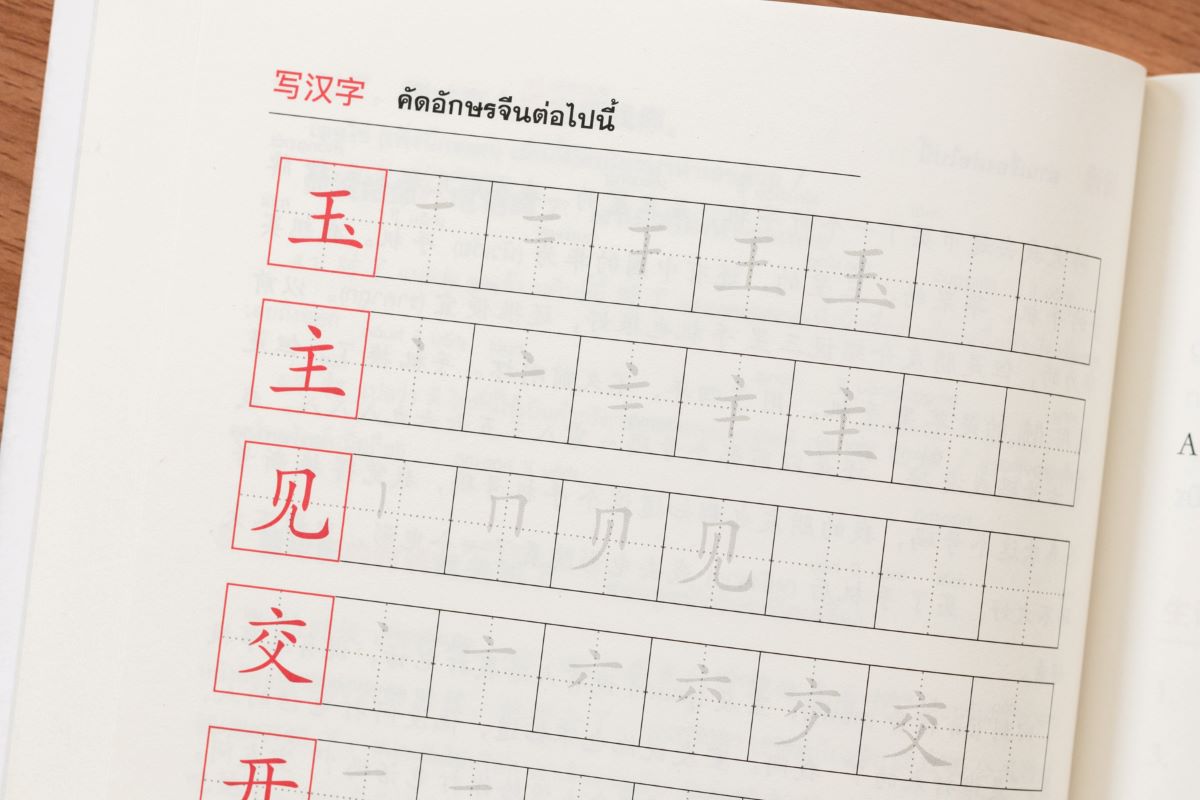 写汉字 คัดอักษรจีนต่อไปนี้
玉 一 二 干 王 玉
主 丶 亠 主
见 丨 冂 贝 见
交 丶 亠 六 交
开 一 二
A